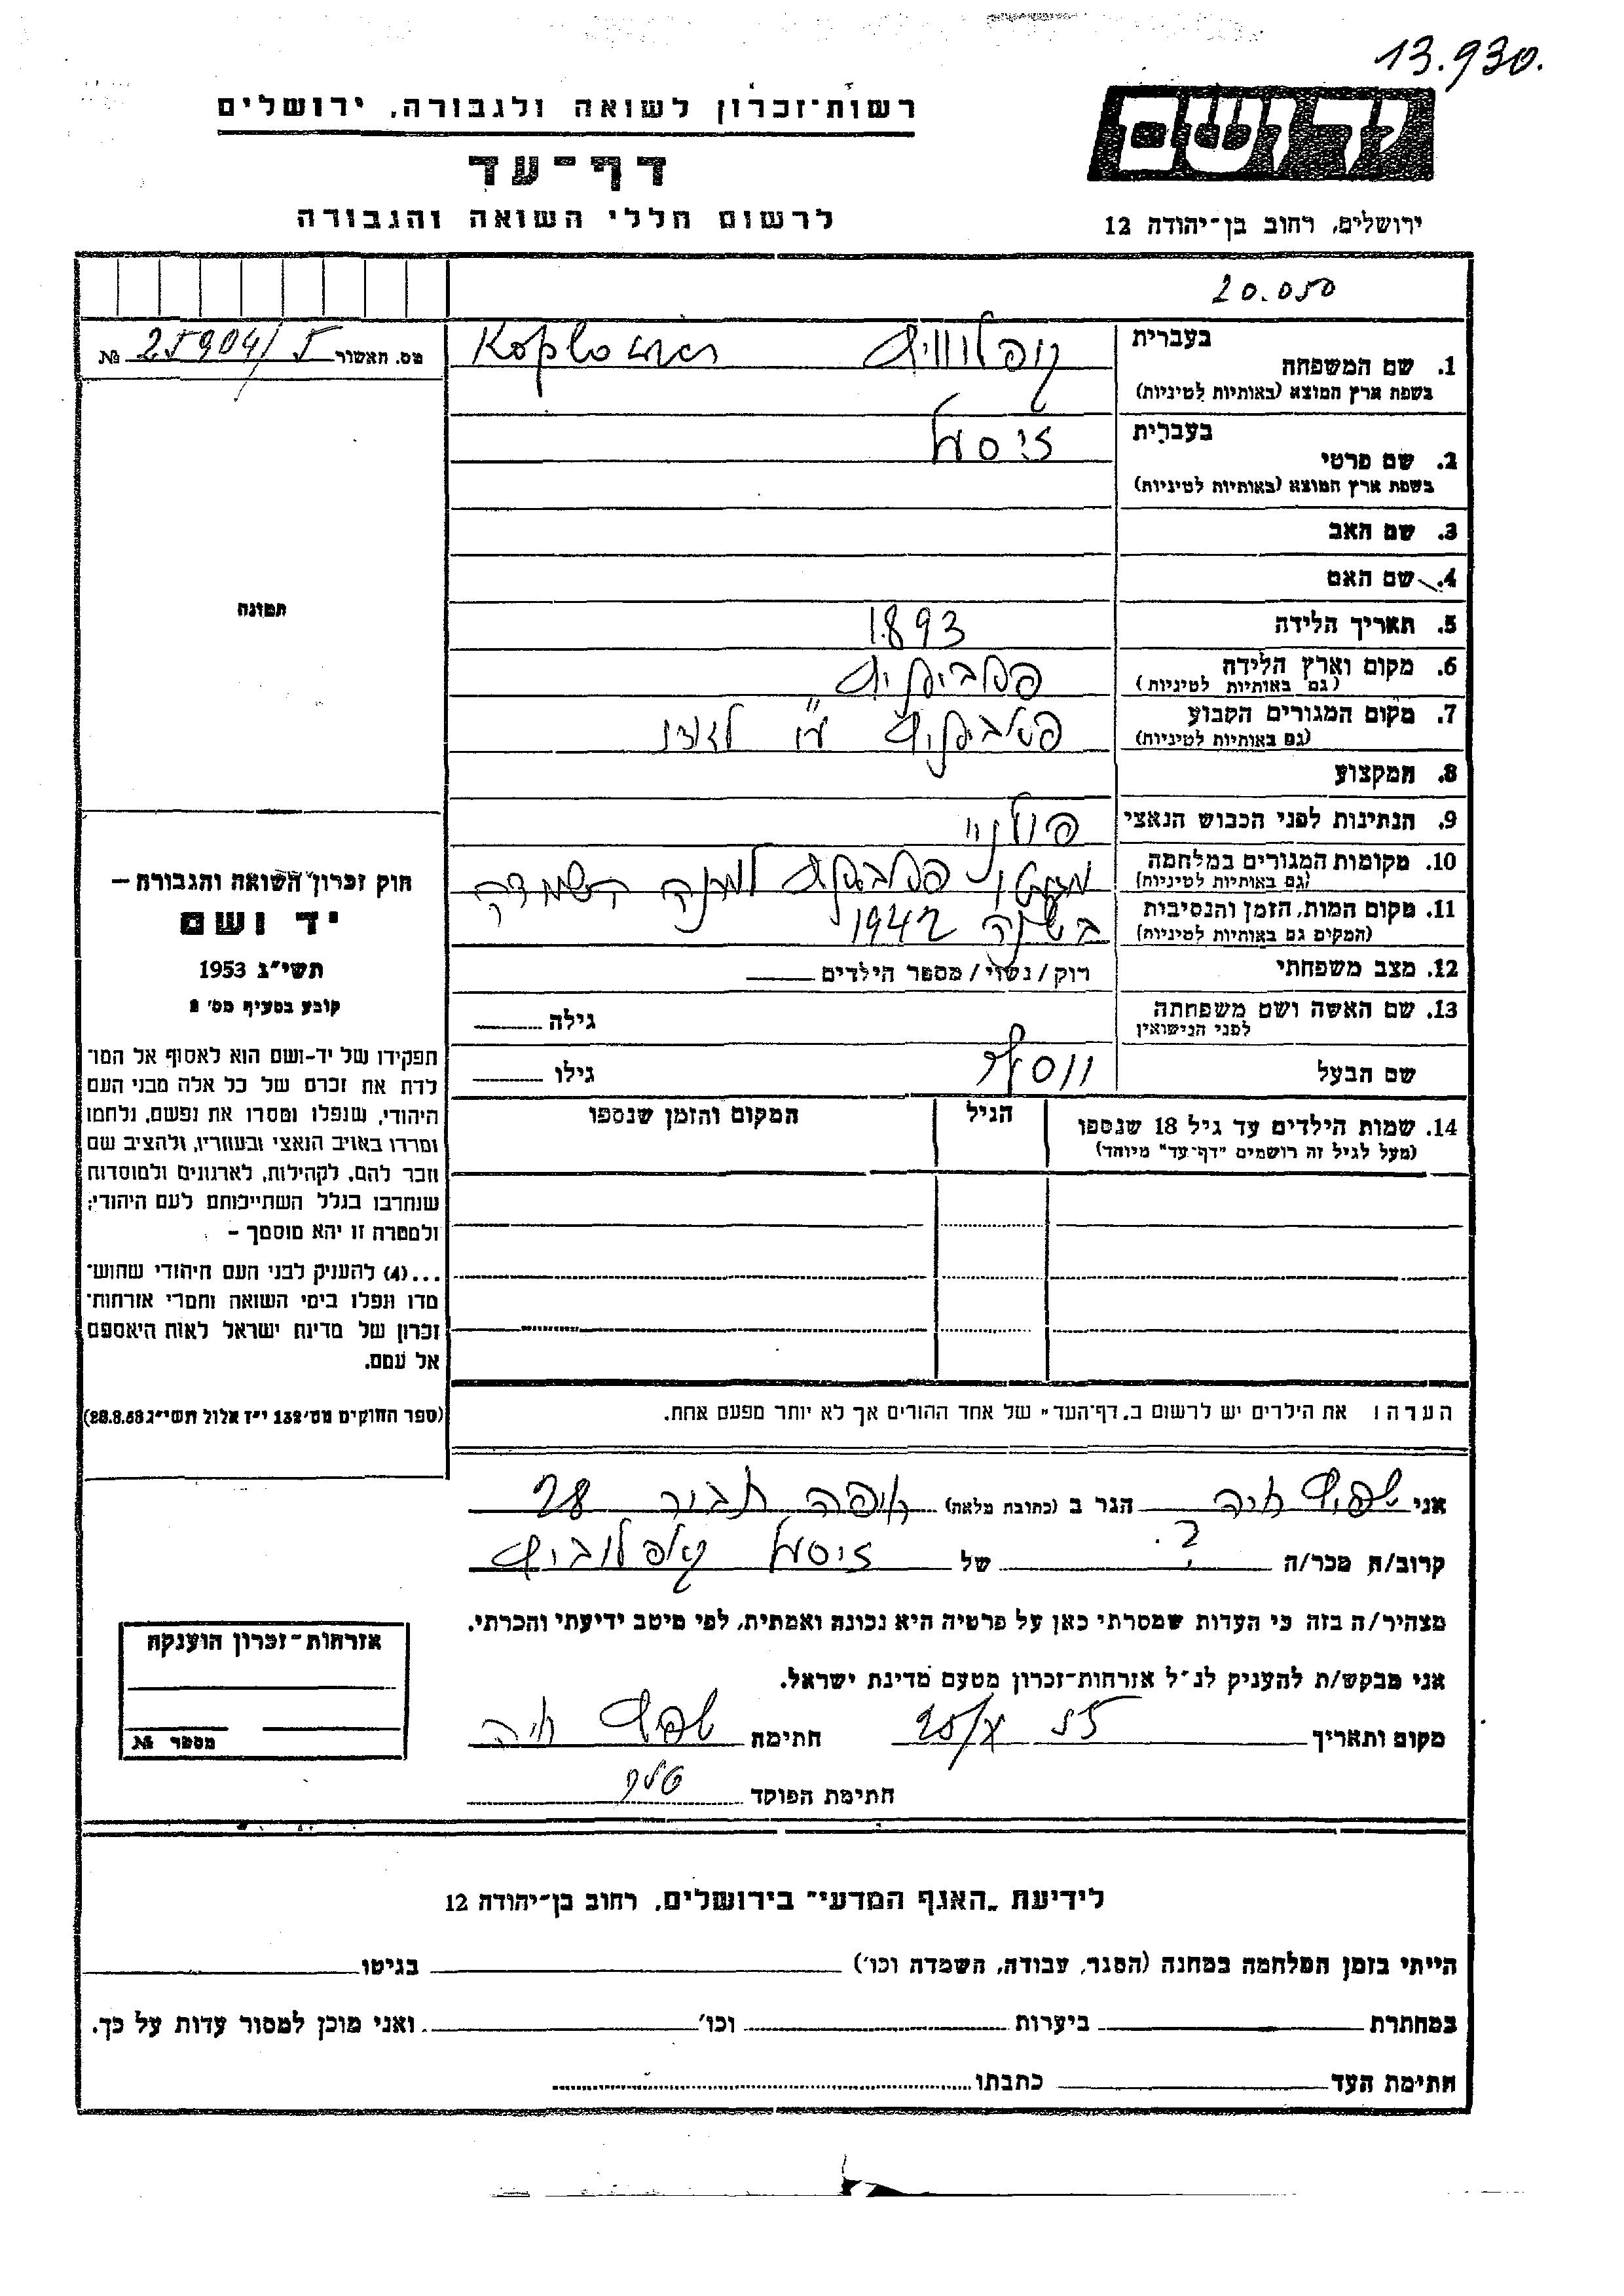 13.930.
רשות־זכרון לשואה ולגבורה, ירושלים
דף־עד
לרשום חללי השואה והגבורה
ידושם
ירושלים, רחוב בן־יהודה 12
20.050
מס. האשור 25904/5 №
בעברית
1. שם המשפחה
בשפת ארץ המוצא (באותיות לטיניות)
בעברית
2. שם פרטי זיסל
בשפת ארץ המוצא (באותיות לטיניות)
3. שם האב
4. שם האם
5. תאריך הלידה 1893
6. מקום וארץ הלידה
(גם באותיות לטיניות)
7. מקום המגורים הקבוע
(גם באותיות לטיניות)
8. המקצוע
9. הנתינות לפני הכבוש הנאצי
10. מקומות המגורים במלחמה
(גם באותיות לטיניות)
11. מקום המות, הזמן והנסיבות בשנת 1942
(המקום גם באותיות לטיניות)
12. מצב משפחתי רוק/נשוי/מספר הילדים
13. שם האשה ושם משפחתה גילה
לפני הנישואין
שם הבעל גילו
14. שמות הילדים עד גיל 18 שנספו הגיל המקום והזמן שנספו
(מעל לגיל זה רושמים "דף־עד" מיוחד)
הערה: את הילדים יש לרשום ב"דף־העד" של אחד ההורים אך לא יותר מפעם אחת.
תמונה
חוק זכרון השואה והגבורה –
יד ושם
תשי"ג 1953
קובע בסעיף מס' 2
תפקידו של יד-ושם הוא לאסוף אל המו־
לדת את זכרם של כל אלה מבני העם
היהודי, שנפלו ומסרו את נפשם, נלחמו
ומרדו באויב הנאצי ובעוזריו, ולהציב שם
וזכר להם, לקהילות, לארגונים ולמוסדות
שנחרבו בגלל השתייכותם לעם היהודי;
ולמטרה זו יהא מוסמך –
...(4) להעניק לבני העם היהודי שהוש־
מדו ונפלו בימי השואה והמרי אזרחות־
זכרון של מדינת ישראל לאות היאספם
אל עמם.
(ספר החוקים מס' 132 י"ז אלול תשי"ג 28.8.53)
אני חיה הגר ב (כתובת מלאה) חיפה תבור 28
קרוב/ה מכר/ה ? של זיסל קופלוביץ
מצהיר/ה בזה כי העדות שמסרתי כאן על פרטיה היא נכונה ואמתית, לפי מיטב ידיעתי והכרתי.
אני מבקש/ת להעניק לנ"ל אזרחות־זכרון מטעם מדינת ישראל.
מקום ותאריך חתימה חיה
חתימת הפוקד
אזרחות־זכרון הוענקה
מספר №
לידיעת "האגף המדעי" בירושלים, רחוב בן־יהודה 12
הייתי בזמן המלחמה במחנה (הסגר, עבודה, השמדה וכו') בגיטו
במחתרת ביערות וכו' ואני מוכן למסור עדות על כך.
חתימת העד כתבתו